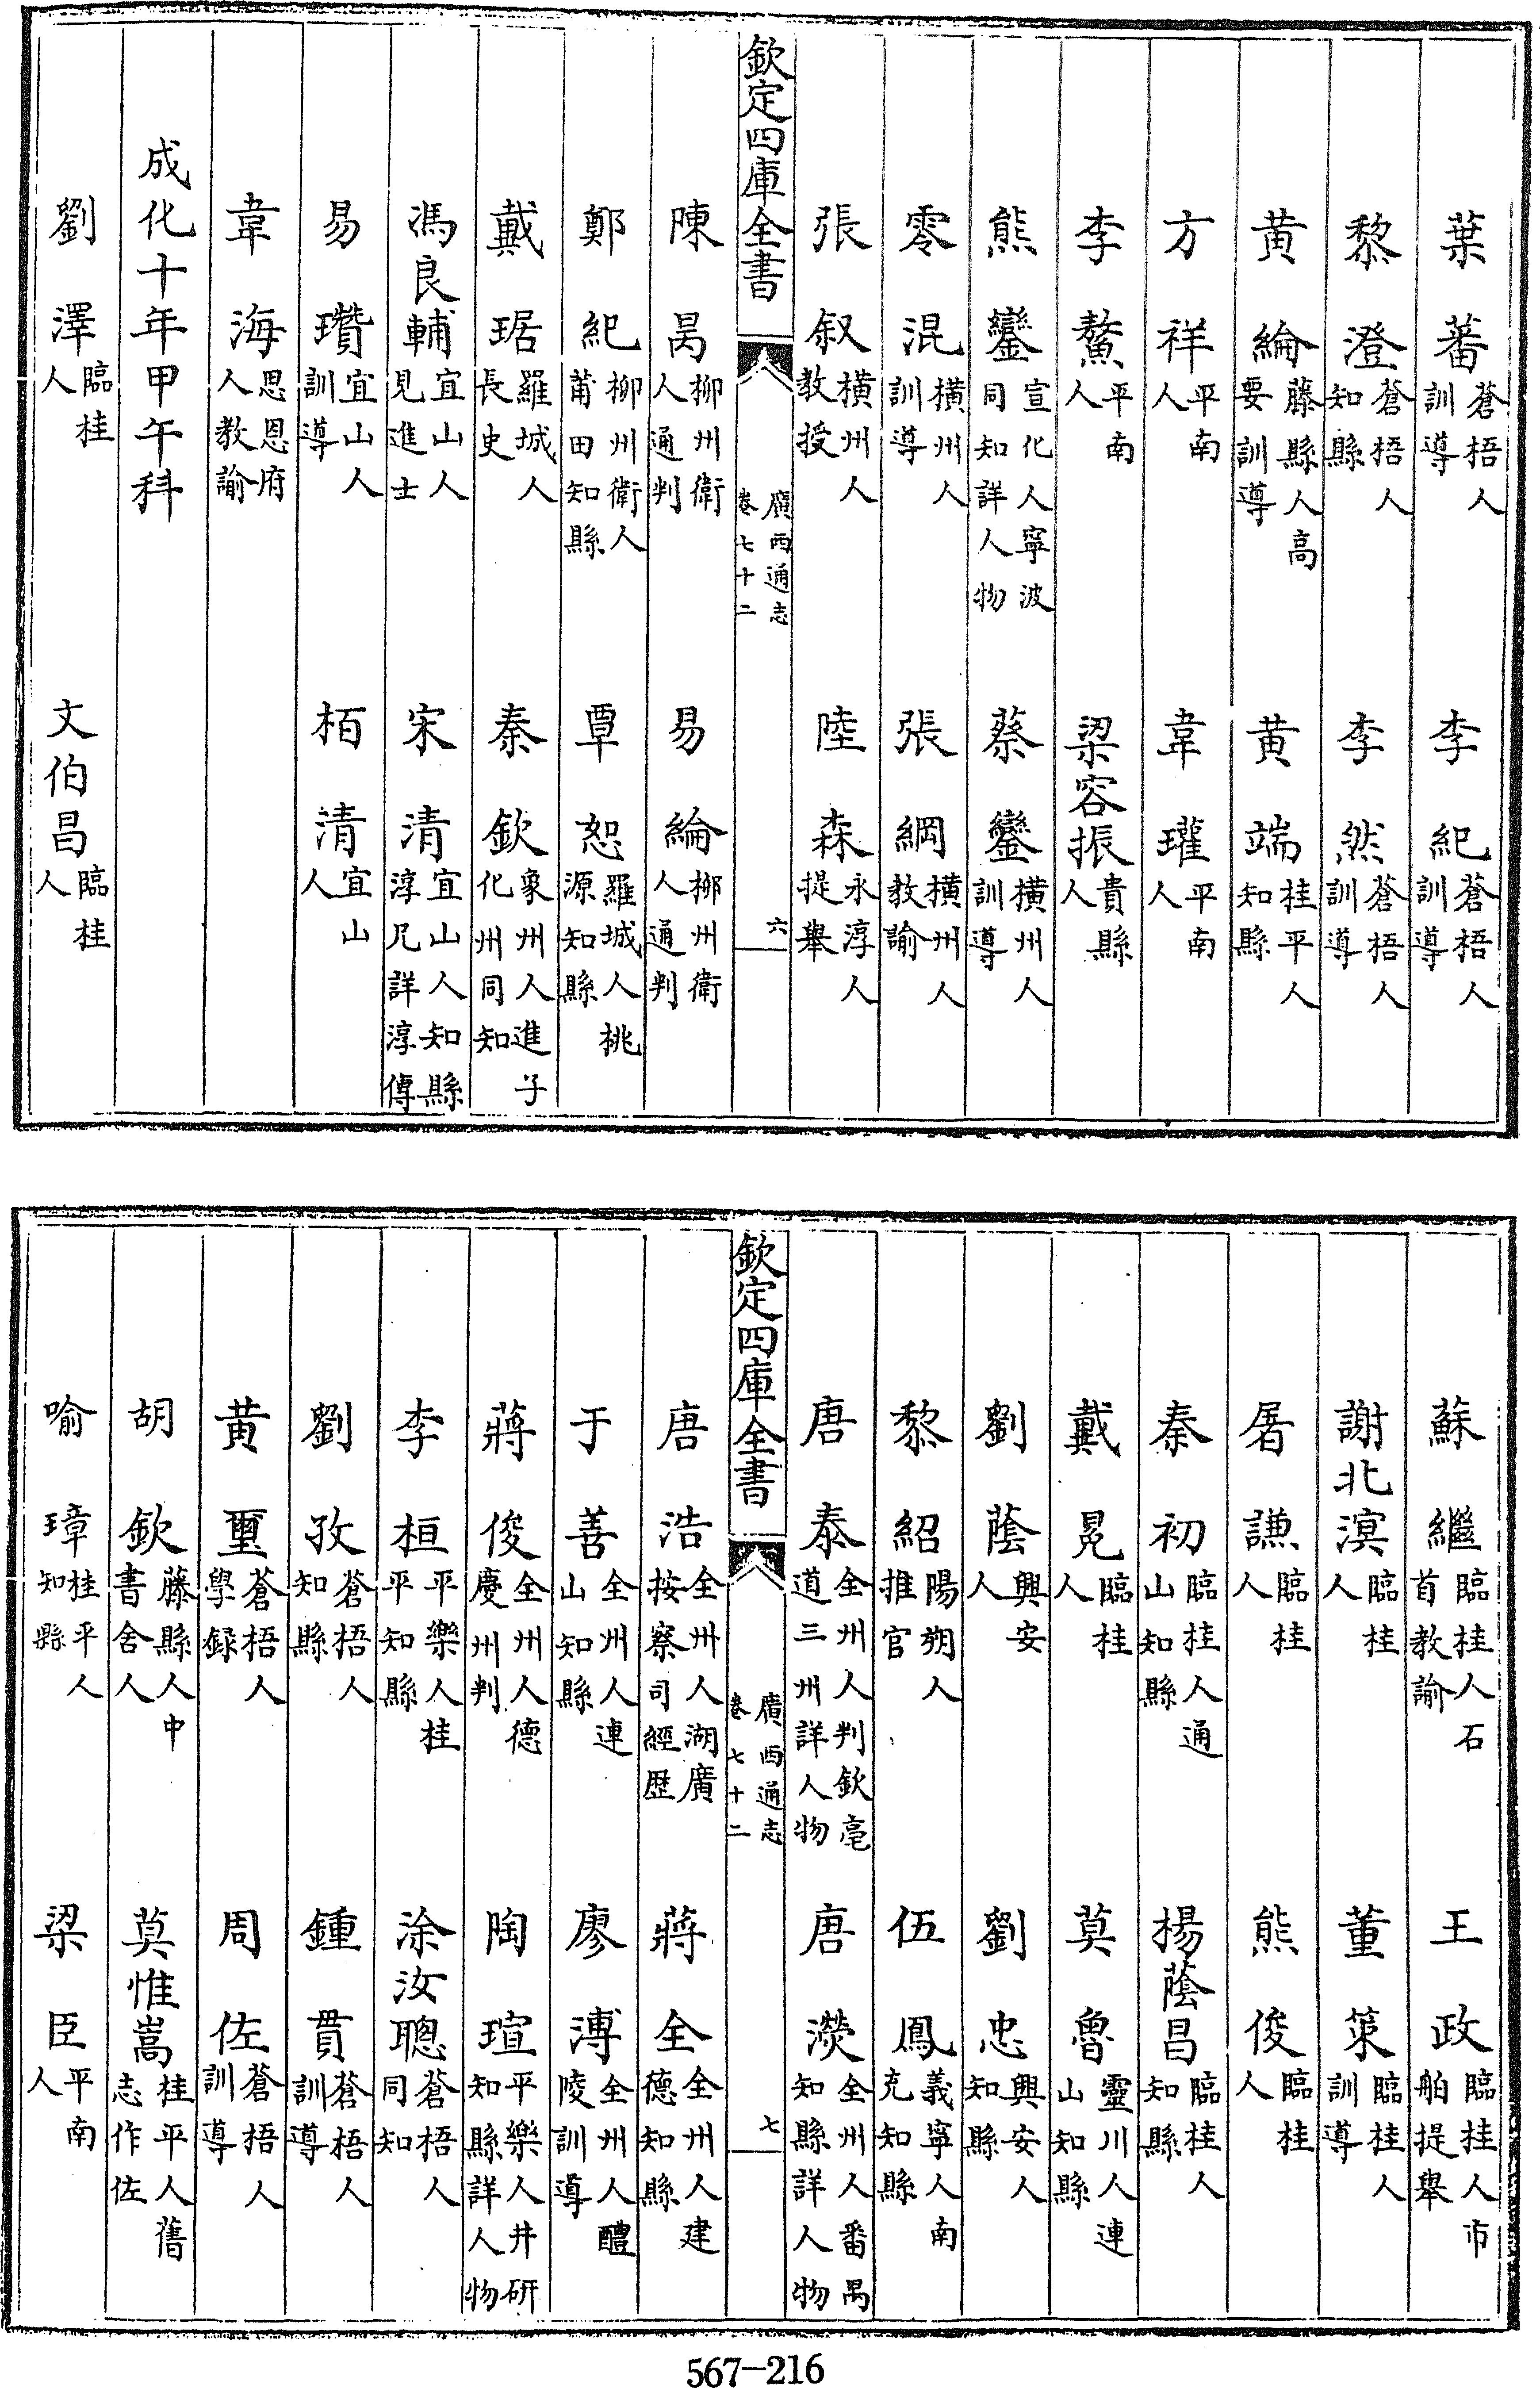 葉蕃蒼梧人訓導 李紀蒼梧人訓導
黎澄蒼梧人知縣 李然蒼梧人訓導
黄綸藤縣人高要訓導 黄端桂平人知縣
方祥平南人 韋瓘平南人
李鰲平南人 梁容振貴縣人
熊鑾宣化人寧波同知詳人物 蔡鑾橫州人訓導
零混橫州人訓導 張綱橫州人教諭
張叙橫州人教授 陸森永淳人提舉
欽定四庫全書 廣西通志卷七十二 六
陳昺柳州衛人通判 易綸柳州衛人通判
鄭紀柳州衛人莆田知縣 覃恕羅城人桃源知縣
戴琚羅城人長史 秦欽象州人進子化州同知
馮良輔宜山人見進士 宋清宜山人知縣淳兄詳淳傳
易瓚宜山人訓導 栢清宜山人
韋海思恩府人教諭
成化十年甲午科
劉澤臨桂人 文伯昌臨桂人
蘇繼臨桂人石首教諭 王政臨桂人市舶提舉
謝北溟臨桂人 董策臨桂人訓導
屠謙臨桂人 熊俊臨桂人
秦初臨桂人通山知縣 楊蔭昌臨桂人知縣
戴冕臨桂人 莫魯靈川人連山知縣
劉蔭興安人 劉忠興安人知縣
黎紹陽朔人推官 伍鳳義寧人南充知縣
唐泰全州人判欽亳道三州詳人物 唐濙全州人番禺知縣詳人物
欽定四庫全書 廣西通志卷七十二 七
唐浩全州人湖廣按察司經歷 蔣全全州人建德知縣
于善全州人連山知縣 廖溥全州人醴陵訓導
蔣俊全州人德慶州判 陶瑄平樂人井研知縣詳人物
李桓平樂人桂平知縣 涂汝聰蒼梧人同知
劉孜蒼梧人知縣 鍾貫蒼梧人訓導
黄璽蒼梧人學録 周佐蒼梧人訓導
胡欽藤縣人中書舍人 莫惟嵩桂平人舊志作佐
喻璋桂平人知縣 梁臣平南人
567-216